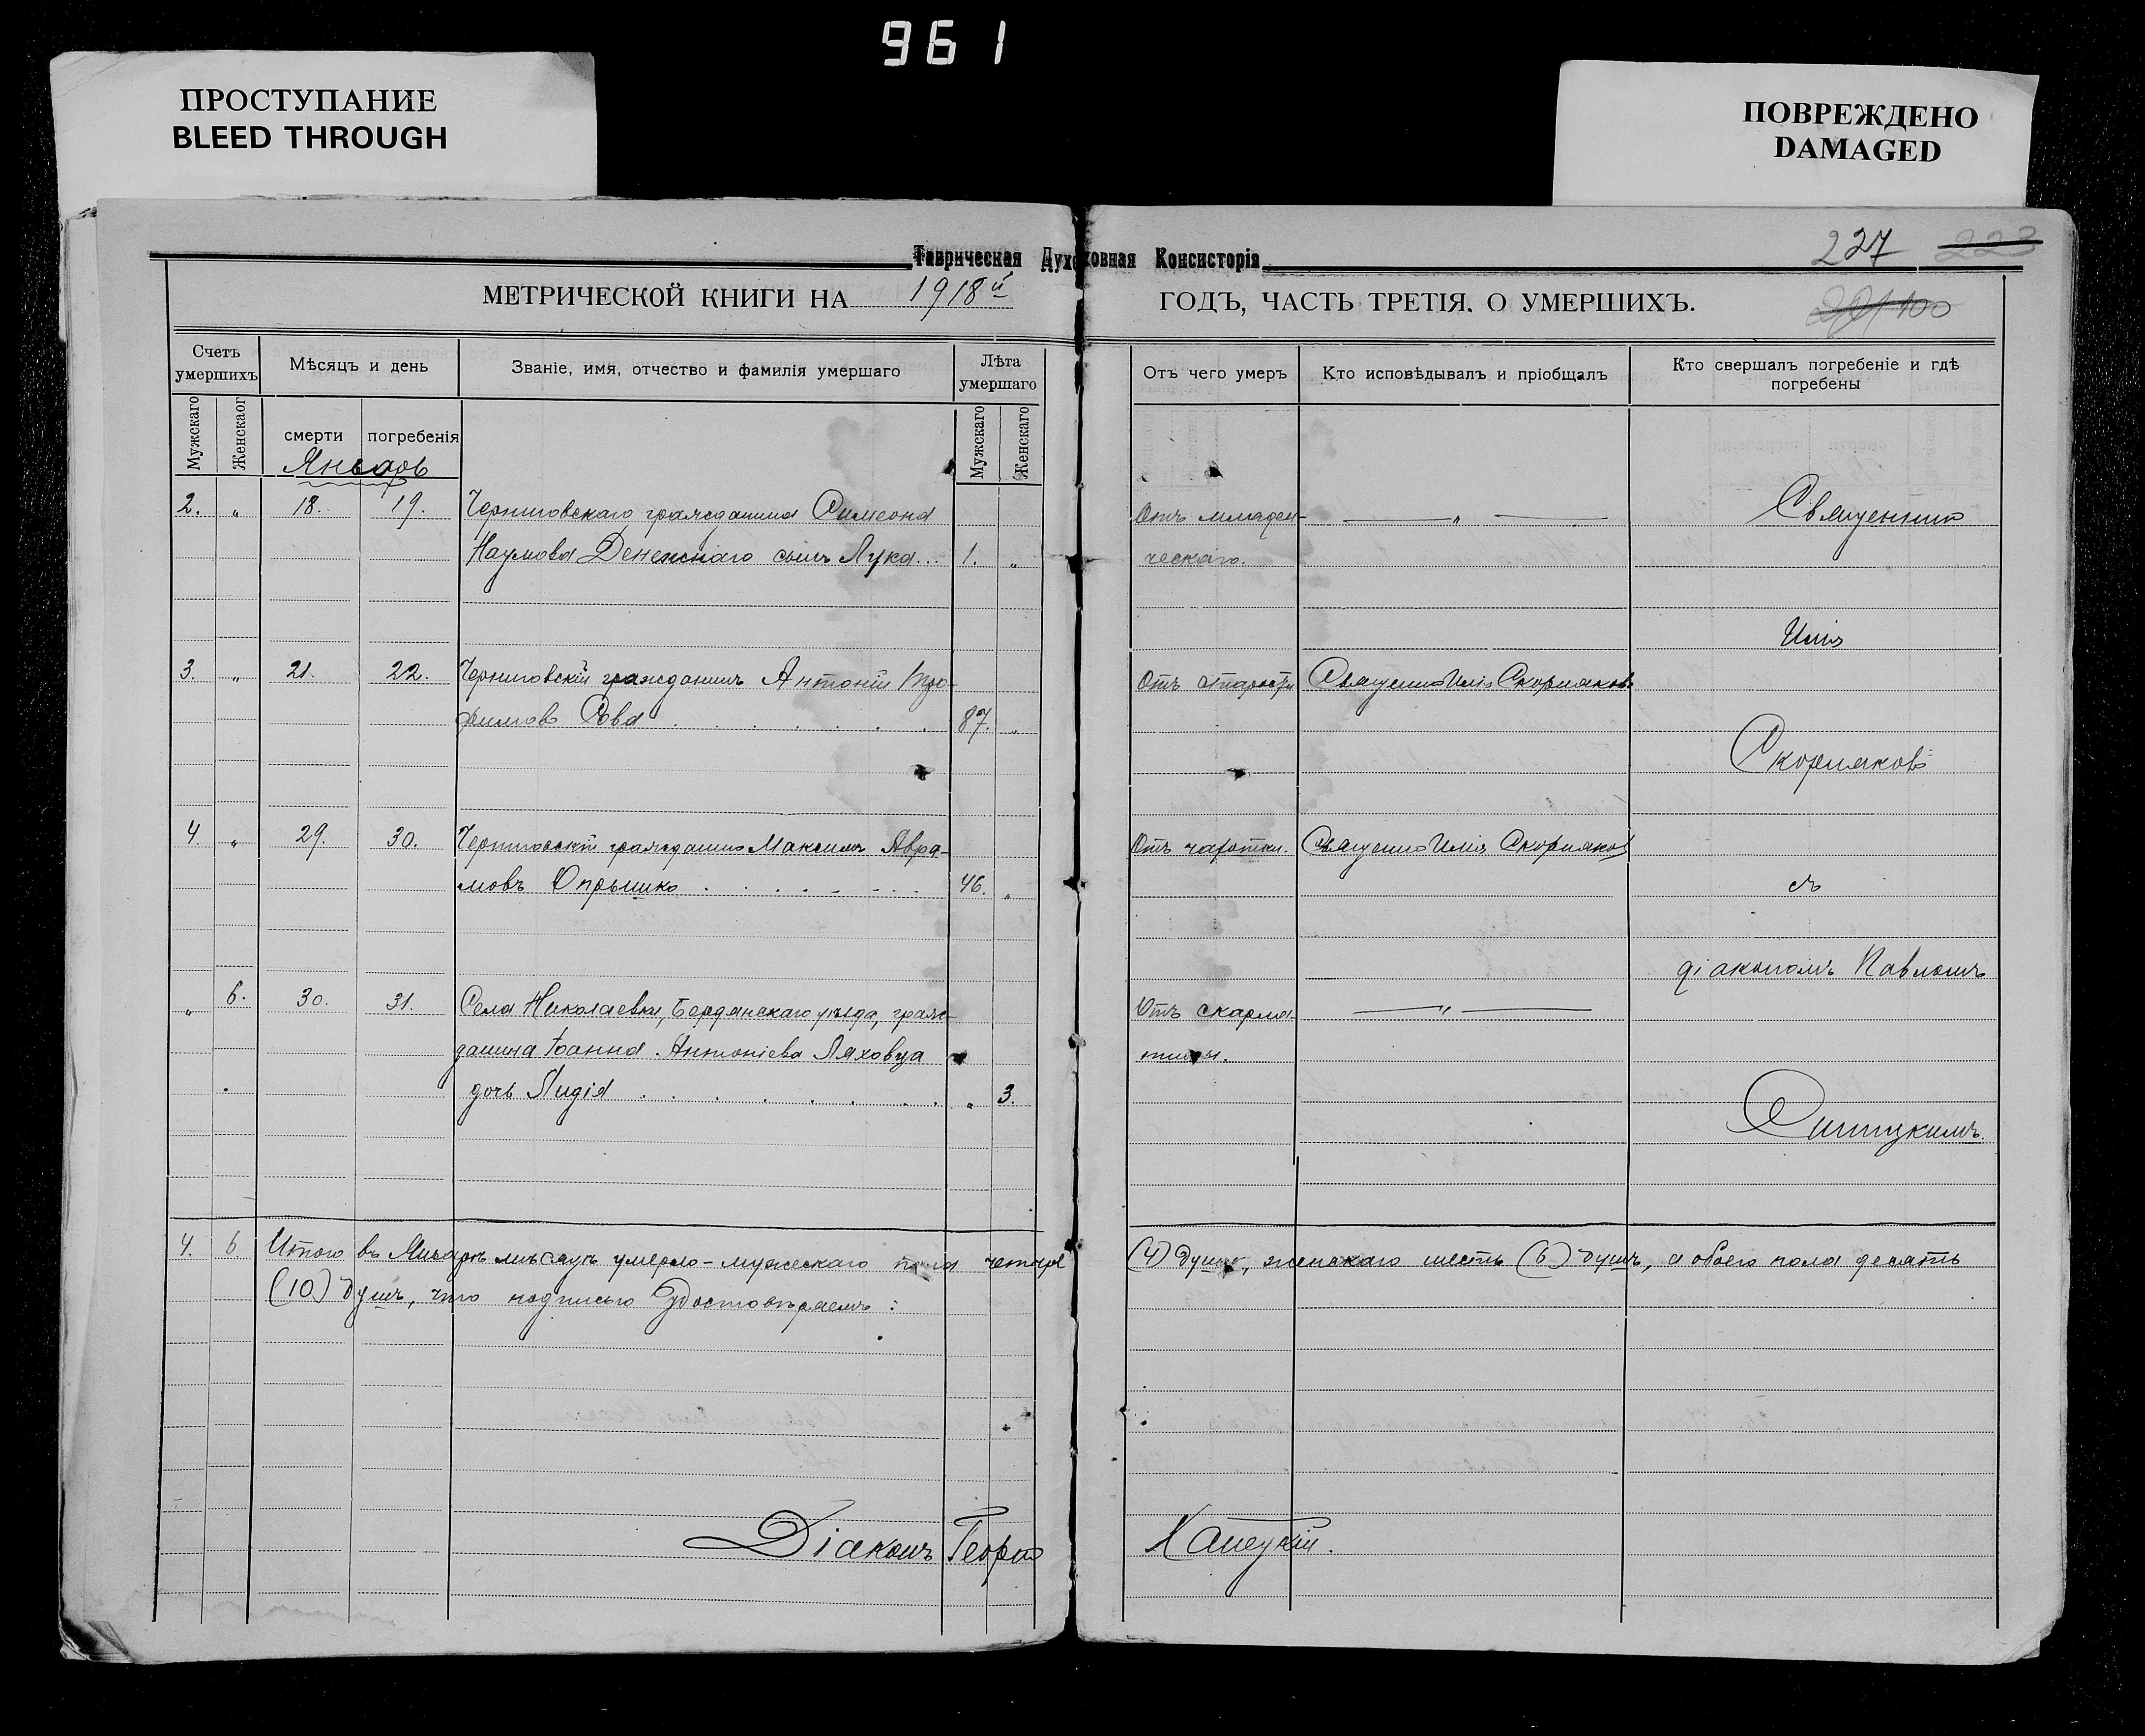 961
ПРОСТУПАНИЕ
BLEED THROUGH
ПОВРЕЖДЕНО
DAMAGED
Таврическая Духовная Консисторія
227 223
МЕТРИЧЕСКОЙ КНИГИ НА 1918й ГОДЪ, ЧАСТЬ ТРЕТІЯ. О УМЕРШИХЪ.
100
Счетъ умершихъ
Мѣсяцъ и день
Званіе, имя, отчество и фамилія умершаго
Лѣта умершаго
Отъ чего умеръ
Кто исповѣдывалъ и пріобщалъ
Кто свершалъ погребеніе и гдѣ погребены
Мужскаго
Женскаог
смерти
погребенія
Мужскаго
Женскаго
Январь
2. „ 18. 19. Черниговскаго гражданина Симеона Отъ младен- — „ — Священникъ
Наумова Денежнаго сынъ Лука... 1. „ ческаго.
Илія
3. „ 21. 22. Черниговскій гражданинъ Антоній Тро- Отъ старости Священникъ Илія Скорняковъ
фимовъ Сова . . . . . . 87. „
Скорняковъ
4. „ 29. 30. Черниговскій гражданинъ Максимъ Авра- Отъ чахотки. Священникъ Илія Скорняковъ
мовъ Опрышко . . . . . . 46. „ съ
діакономъ Павломъ
„ 6. 30. 31. Села Николаевки, Бердянскаго уѣзда, граж- Отъ скарла- — „ —
данина Іоанна Антоніева Ляховца тины.
дочь Лидія . . . . . . . „ 3.
4. 6. Итого въ Январѣ мѣсяцѣ умерло - мужескаго пола четыре (4) душъ, женскаго шесть (6) душъ, а обоего пола десять
(10) душъ, что подписью удостовѣряемъ:
Діаконъ Георгій Ханецкій.